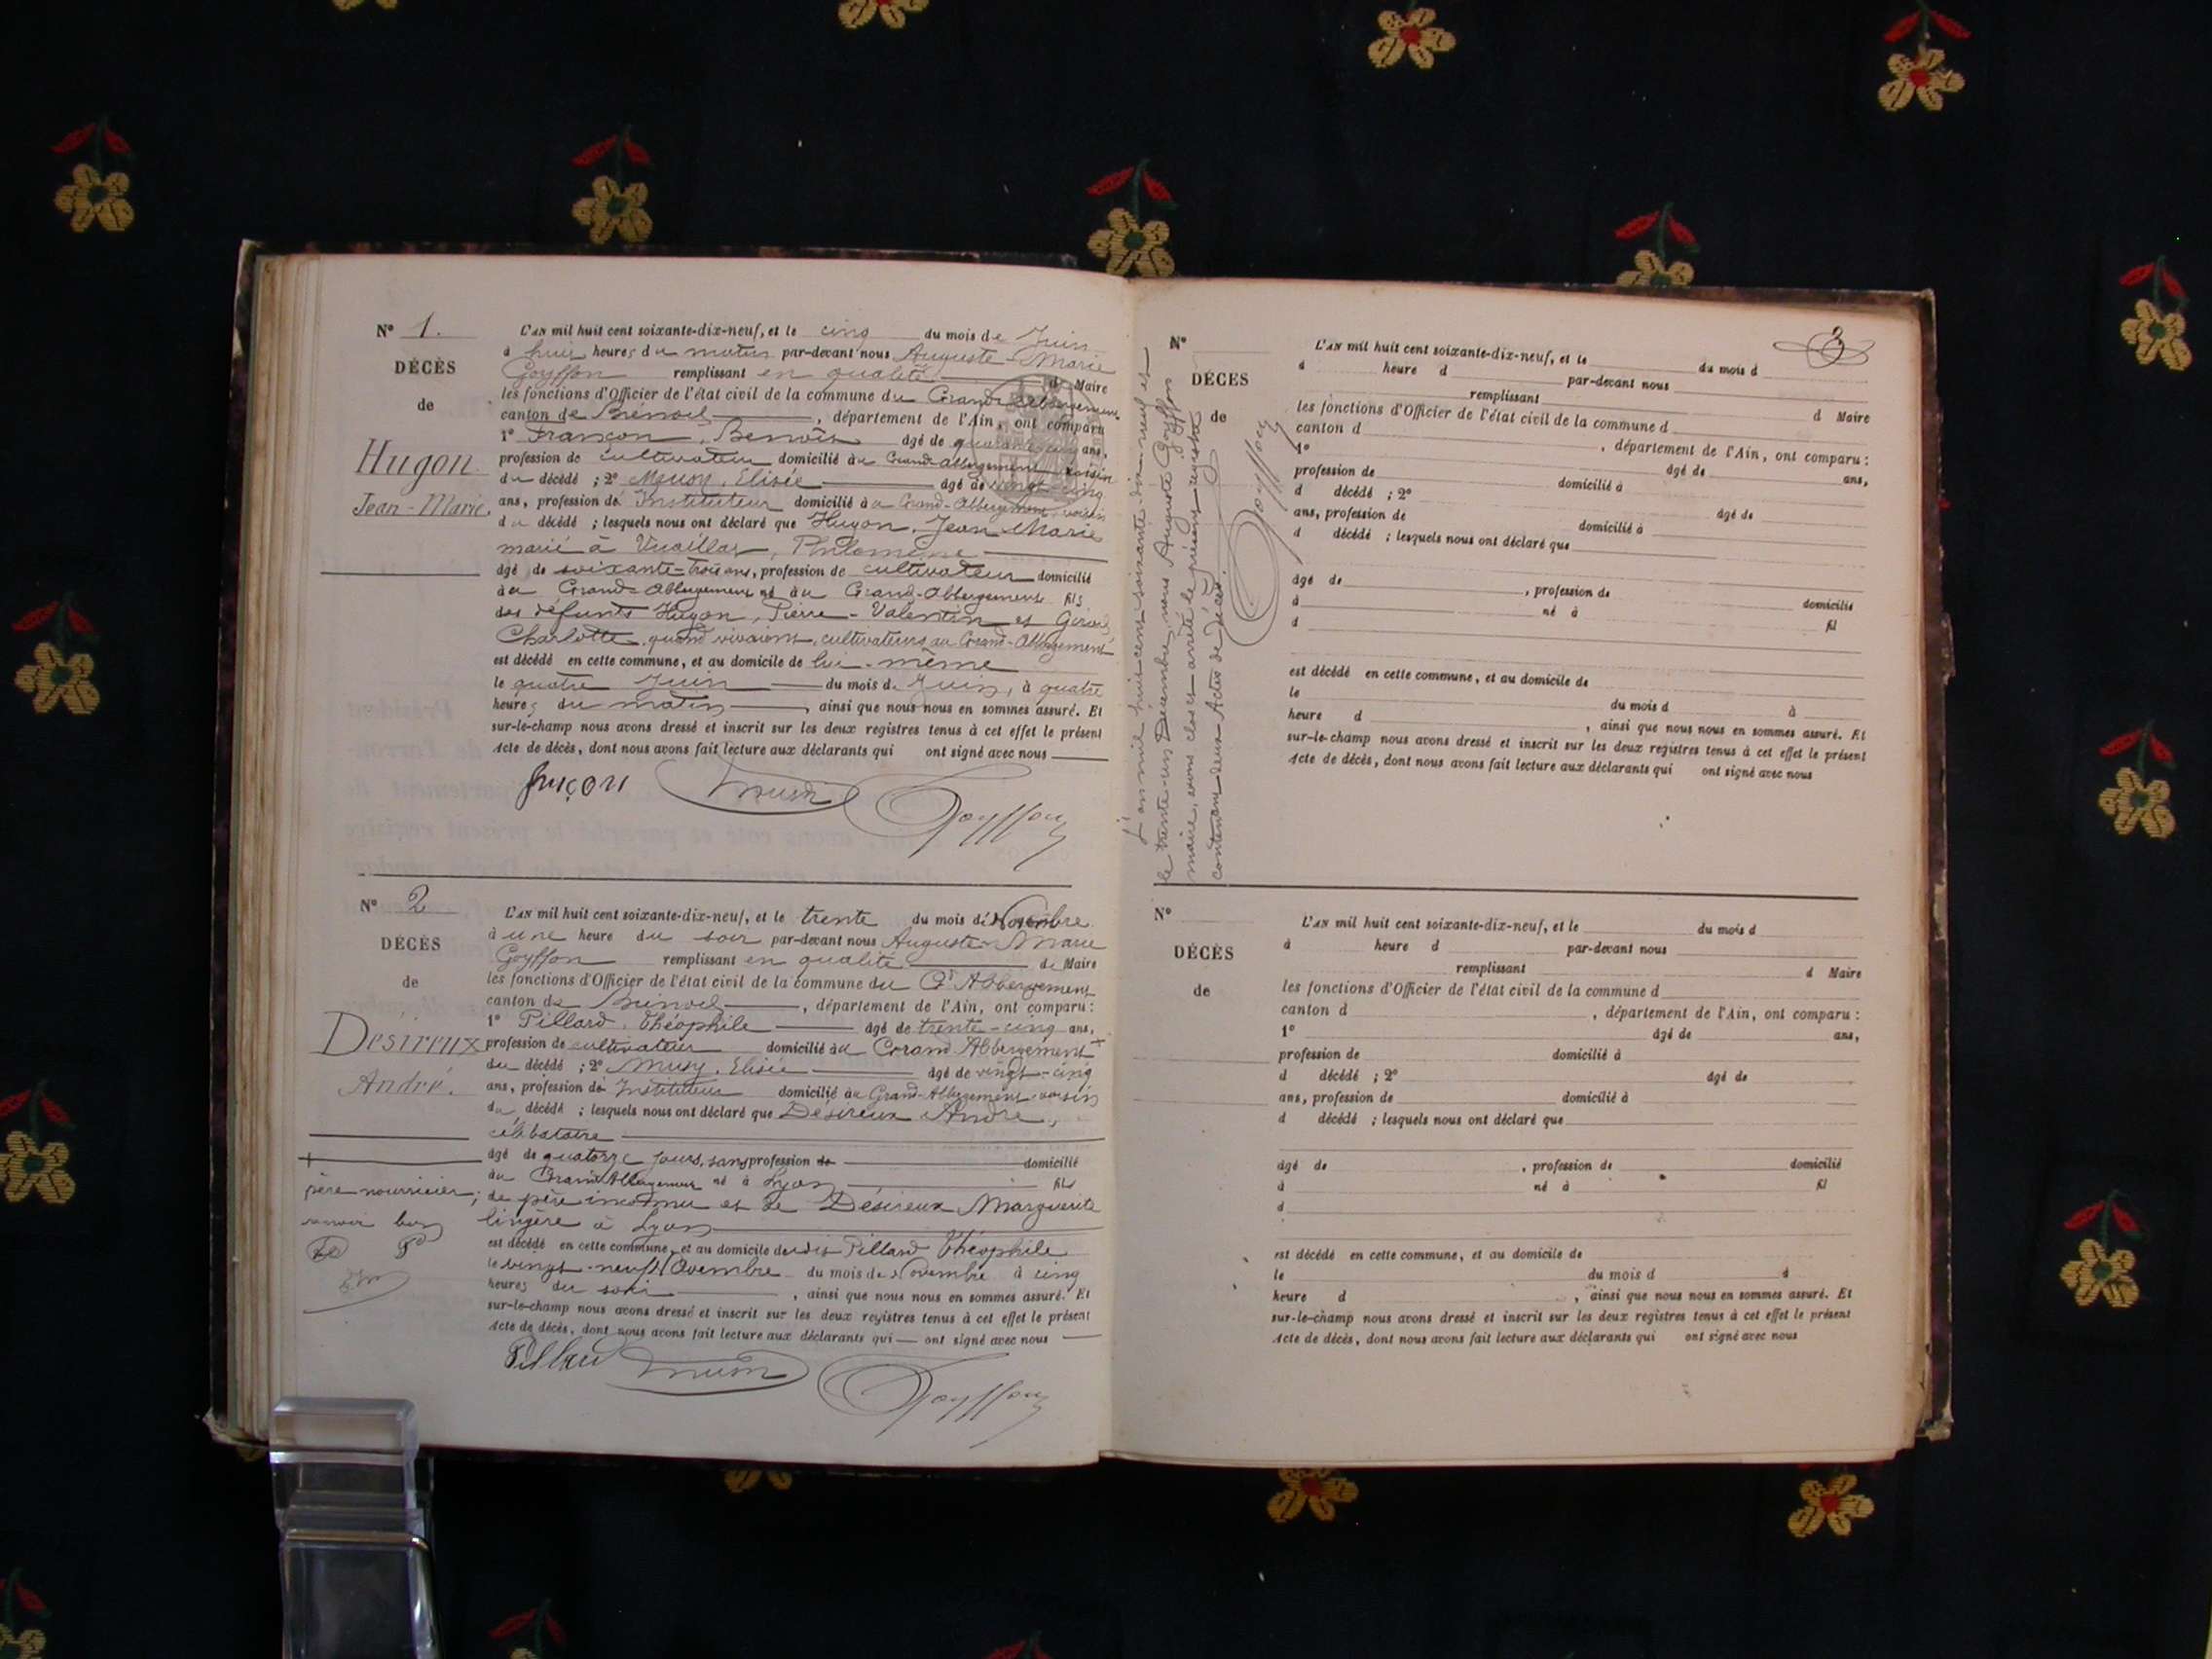 N° 1.
DÉCÈS
de
Hugon
Jean-Marie.
L'AN mil huit cent soixante-dix-neuf, et le cinq du mois de Juin
à huit heures du matin par-devant nous Auguste-Marie
Goyffon remplissant en qualité de Maire
les fonctions d'Officier de l'état civil de la commune du Grand-Abbergement
canton de Brénod, département de l'Ain, ont comparu
1° Françon, Benoît âgé de quarante-cinq ans,
profession de cultivateur domicilié au Grand-Abbergement voisin
du décédé ; 2° Musy, Elisée âgé de vingt-cinq
ans, profession de Instituteur domicilié au Grand-Abbergement, voisin
du décédé ; lesquels nous ont déclaré que Hugon, Jean Marie
marié à Philomène
âgé de soixante-trois ans, profession de cultivateur domicilié
au Grand-Abbergement né au Grand-Abbergement fils
des défunts Hugon, Pierre-Valentin et
Charlotte, quand vivaient, cultivateurs au Grand-Abbergement
est décédé en cette commune, et au domicile de lui-même
le quatre Juin du mois de Juin, à quatre
heures du matin, ainsi que nous nous en sommes assuré. Et
sur-le-champ nous avons dressé et inscrit sur les deux registres tenus à cet effet le présent
Acte de décès, dont nous avons fait lecture aux déclarants qui ont signé avec nous
Musy
Goyffon
N° 2
DÉCÈS
de
Désireux
André.
L'AN mil huit cent soixante-dix-neuf, et le trente du mois de Novembre
à une heure du soir par-devant nous Auguste-Marie
Goyffon remplissant en qualité de Maire
les fonctions d'Officier de l'état civil de la commune du Gd Abbergement
canton de Brénod, département de l'Ain, ont comparu :
1° Pillard, Théophile âgé de trente-cinq ans,
profession de cultivateur domicilié au Grand Abbergement +
du décédé ; 2° Musy, Elisée âgé de vingt-cinq
ans, profession de Instituteur domicilié au Grand-Abbergement voisin
du décédé ; lesquels nous ont déclaré que Desireux André,
célibataire
âgé de quatorze jours, sans profession de domicilié
au Grand Abbergement né à Lyon fils
de père inconnu et de Désireux Marguerite
lingère à Lyon
est décédé en cette commune, et au domicile dudit Pillard Théophile
le vingt-neuf Novembre du mois de Novembre à cinq
heures du soir, ainsi que nous nous en sommes assuré. Et
sur-le-champ nous avons dressé et inscrit sur les deux registres tenus à cet effet le présent
Acte de décès, dont nous avons fait lecture aux déclarants qui ont signé avec nous
+
père nourricier;
renvoi bon
Pillard
Musy
Goyffon
L'an mil huit cent soixante-dix-neuf et
le trente-un Décembre, nous Auguste Goyffon
maire, avons clos et arrêté le présent registre
contenant deux Actes de décès.
Goyffon
3
N°
DÉCÈS
de
L'AN mil huit cent soixante-dix-neuf, et le du mois d
à heure d par-devant nous
remplissant d Maire
les fonctions d'Officier de l'état civil de la commune d
canton d , département de l'Ain, ont comparu :
1° âgé de ans,
profession de domicilié à
d décédé ; 2° âgé de
ans, profession de domicilié à
d décédé ; lesquels nous ont déclaré que
âgé de , profession de domicilié
à né à fil
d
est décédé en cette commune, et au domicile de
le du mois d à
heure d , ainsi que nous nous en sommes assuré. Et
sur-le-champ nous avons dressé et inscrit sur les deux registres tenus à cet effet le présent
Acte de décès, dont nous avons fait lecture aux déclarants qui ont signé avec nous
N°
DÉCÈS
de
L'AN mil huit cent soixante-dix-neuf, et le du mois d
à heure d par-devant nous
remplissant d Maire
les fonctions d'Officier de l'état civil de la commune d
canton d , département de l'Ain, ont comparu :
1° âgé de ans,
profession de domicilié à
d décédé ; 2° âgé de
ans, profession de domicilié à
d décédé ; lesquels nous ont déclaré que
âgé de , profession de domicilié
à né à fil
d
est décédé en cette commune, et au domicile de
le du mois d à
heure d , ainsi que nous nous en sommes assuré. Et
sur-le-champ nous avons dressé et inscrit sur les deux registres tenus à cet effet le présent
Acte de décès, dont nous avons fait lecture aux déclarants qui ont signé avec nous